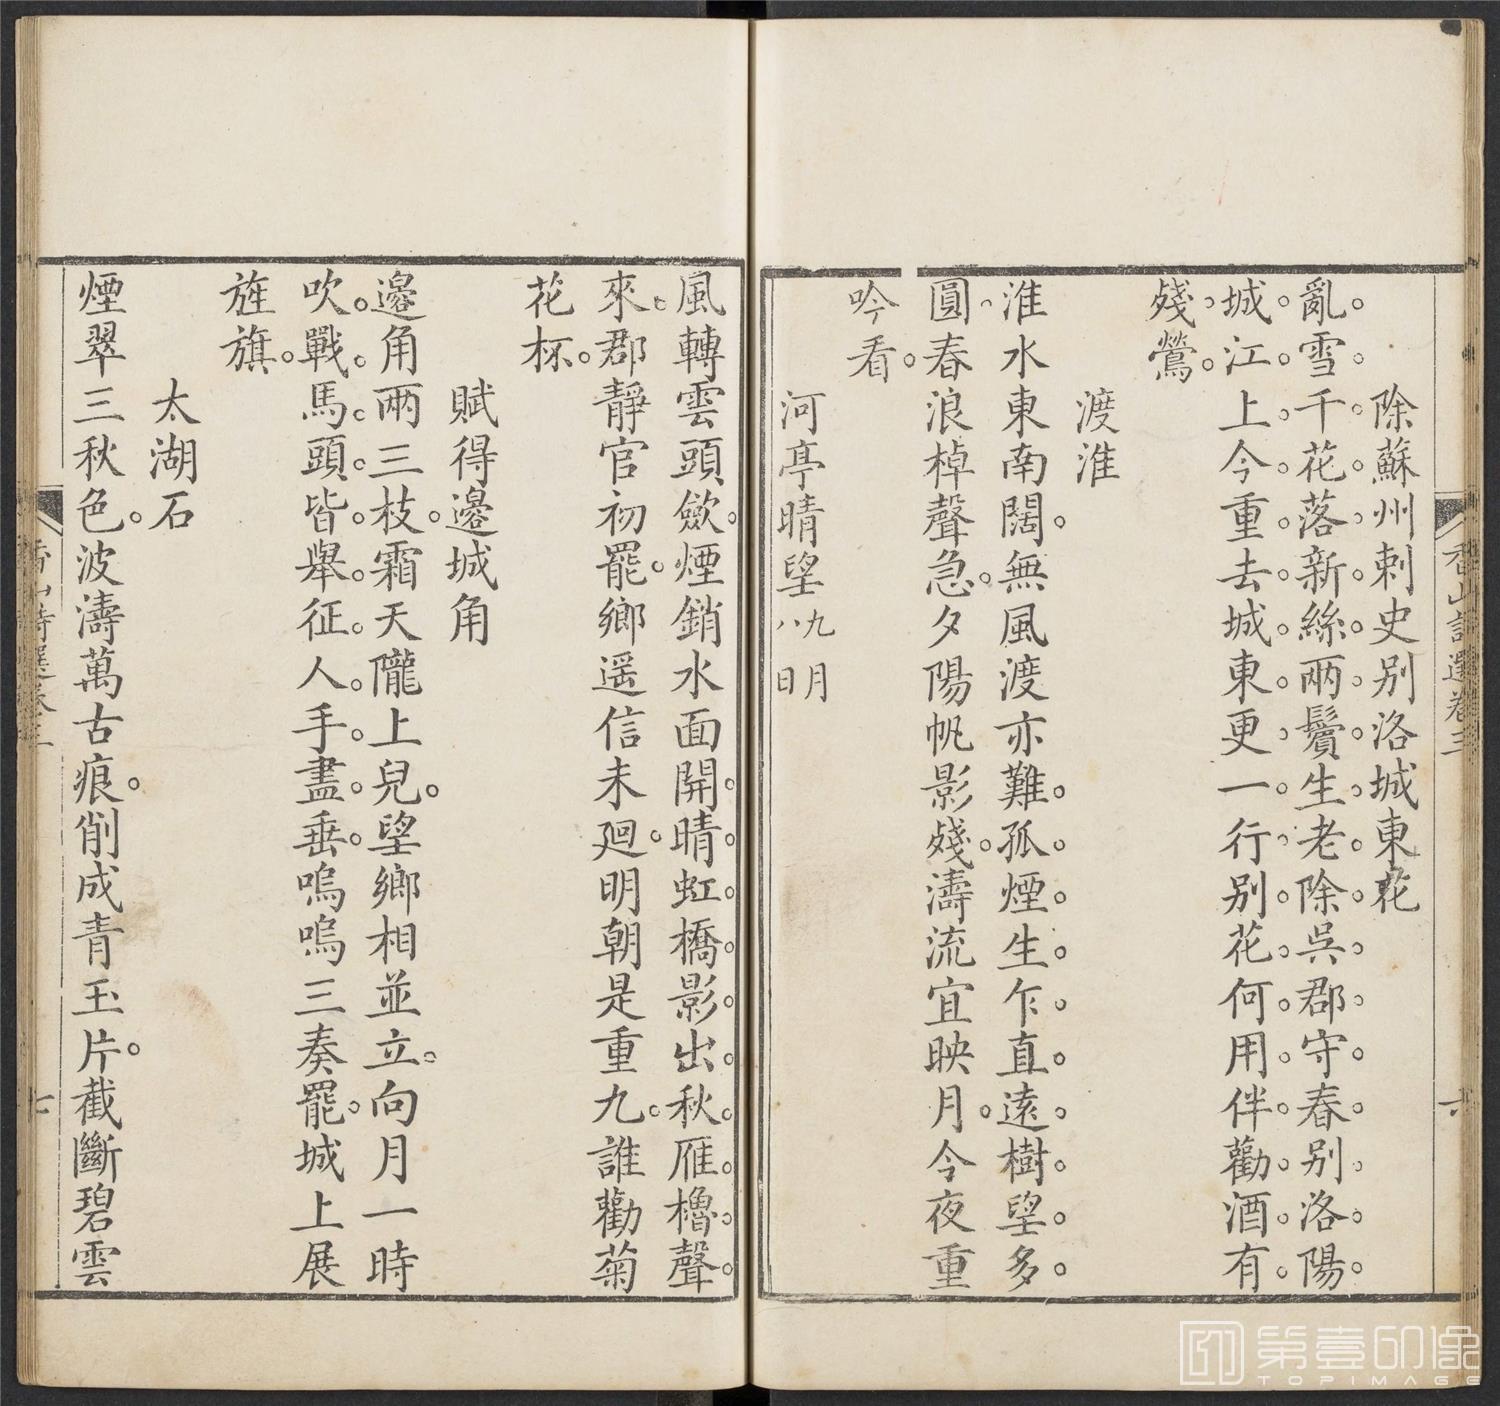 香山詩選卷三
六
除蘇州刺史别洛城東花
亂雪千花落新絲兩鬢生老除吳郡守春别洛陽
城江上今重去城東更一行别花何用伴勸酒有
殘鶯
渡淮
淮水東南闊無風渡亦難孤煙生乍直遠樹望多
圓春浪棹聲急夕陽帆影殘濤流宜映月今夜重
吟看
河亭晴望九月八日
風轉雲頭斂煙銷水面開晴虹橋影出秋雁櫓聲
來郡靜官初罷鄉遥信未廻明朝是重九誰勸菊
花杯
賦得邊城角
邉角兩三枝霜天隴上兒望鄉相並立向月一時
吹戰馬頭皆舉征人手盡垂嗚嗚三奏罷城上展
旌旗
太湖石
煙翠三秋色波濤萬古痕削成青玉片截斷碧雲
香山詩選卷三
七
第壹印像
TOPIMAGE